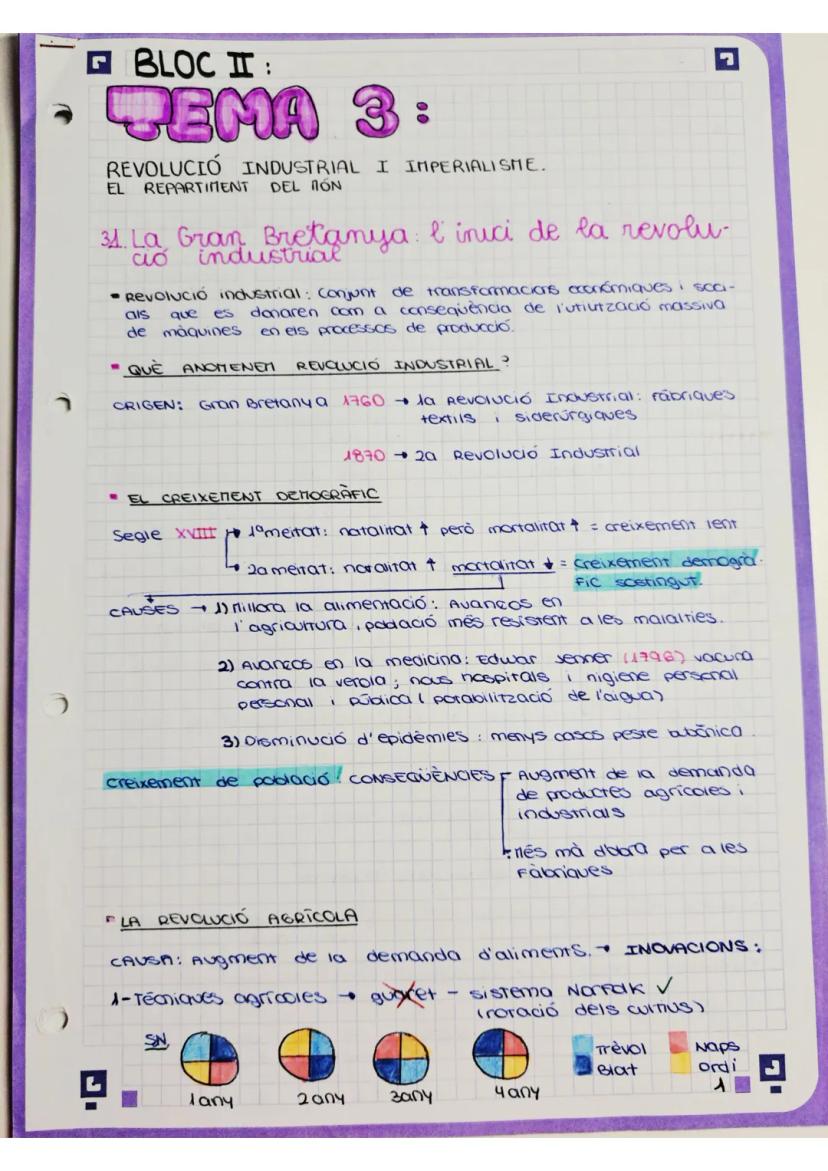 BLOC II:
TEMA 3:
REVOLUCIÓ INDUSTRIAL I IMPERIALISME.
EL REPARTIMENT DEL MÓN
3.1. La Gran Bretanya: l'inici de la revolu-
ció industrial
- Revolució industrial: Conjunt de transformacions econòmiques i soci-
als que es donaren com a conseqüència de l'utilització massiva
de màquines en els processos de producció.
QUÈ ANOMENEM REVOLUCIÓ INDUSTRIAL?
ORIGEN: Gran Bretanya 1760 → 1a Revolució Industrial: fàbriques
tèxtils i siderúrgiques
1870 → 2a Revolució Industrial
EL CREIXEMENT DEMOGRÀFIC
Segle XVIII → 1ª meitat: natalitat ↑ però mortalitat ↑ = creixement lent
→ 2a meitat: natalitat ↑ mortalitat ↓ = creixement demogrà-
fic sostingut.
CAUSES → 1) Millora la alimentació: Avanços en
l'agricultura, població més resistent a les malalties.
2) Avanços en la medicina: Edwar Jenner (1796) vacuna
contra la verola; nous hospitals i higiene personal
personal i pública (potabilització de l'aigua)
3) Disminució d'epidèmies: menys casos peste bubònica.
creixement de població! CONSEQÜÈNCIES Augment de la demanda
de productes agrícoles i
industrials
Més mà d'obra per a les
Fàbriques
LA REVOLUCIÓ AGRÍCOLA
CAUSA: Augment de la demanda d'aliments. → INOVACIONS:
1- Tècniques agrícoles → guaret - sistema Norfolk ✓
(rotació dels cultius)
SN
Trèvol Naps
Blat Ordi
1 any 2 any 3 any 4 any
1